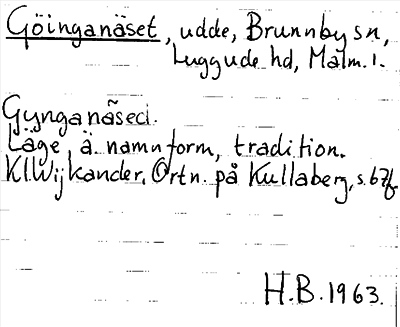 Göinganäset, udde, Brunnby sn,
Luggude hd, Malm. l.
Gynganäsed.
Läge, ä. namnform, tradition.
Kl. Wijkander. Ortn. på Kullaberg, s. 67f.
H.B. 1963.